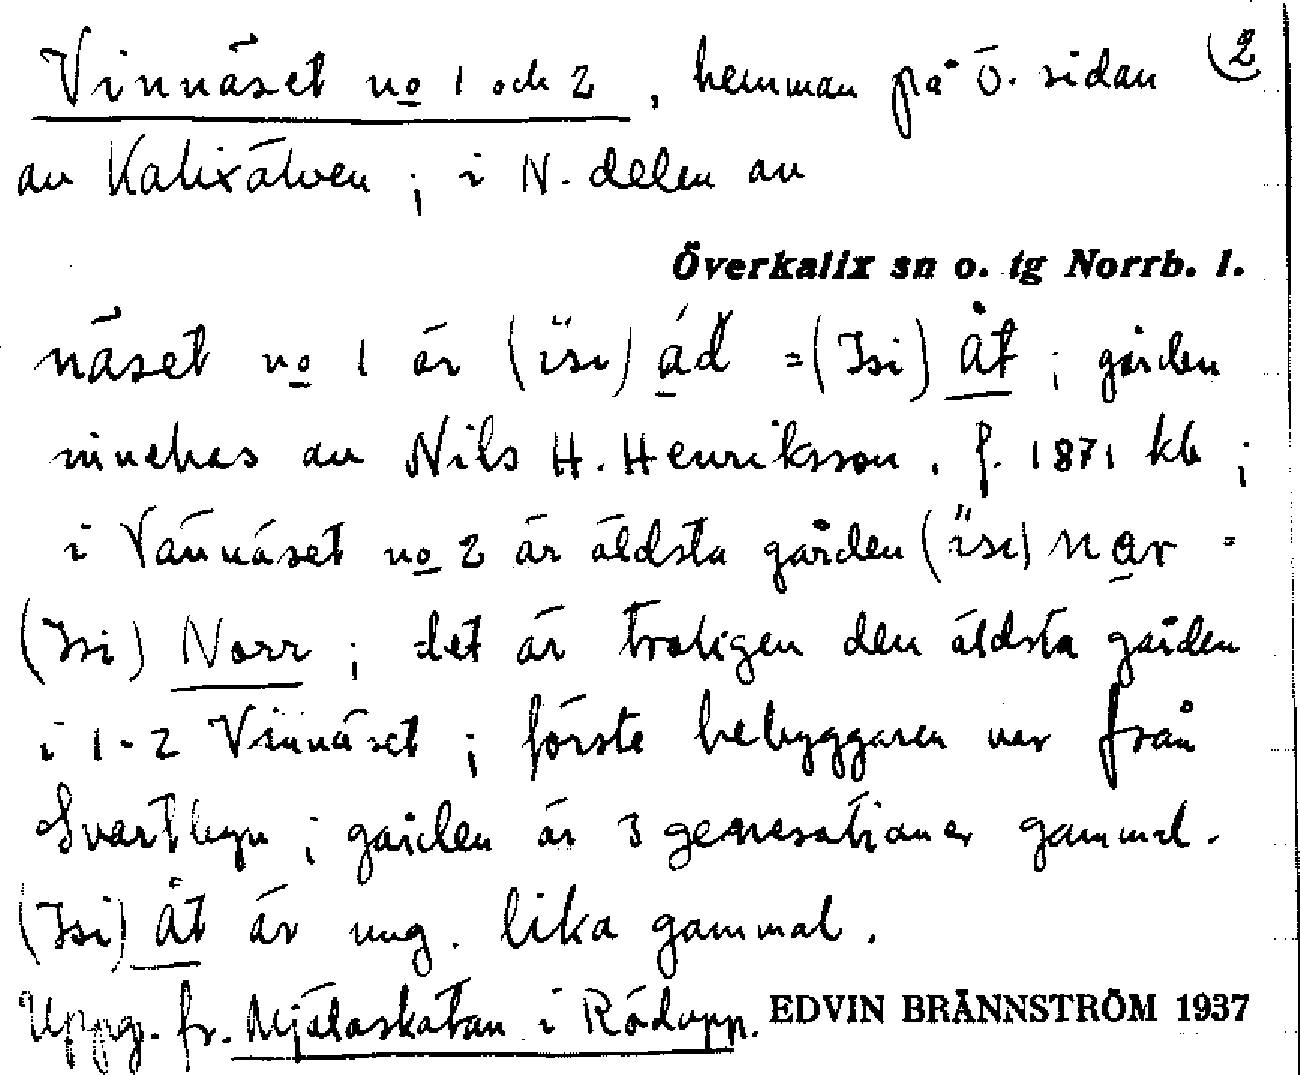 Vinnäset no 1 och 2, hemman på ö. sidan (2
av Kalixälven; i N. delen av
Överkalix sn o. tg Norrb. l.
näset no 1 är (ïsi) ád =(Isi) Åt; gården
innehas av Nils H. Henriksson, f. 1871 kb;
i Vännäset no 2 är äldsta gården (ïsi) nar =
(Isi) Norr; det är troligen den äldsta gården
i 1-2 Vinnäset; förste bebyggaren var från
Svartbyn; gården är 3 generationer gammal.
(Isi) Åt är ung. lika gammal.
Uppg. fr. Mjölaskatan i Rödupp. EDVIN BRÄNNSTRÖM 1937